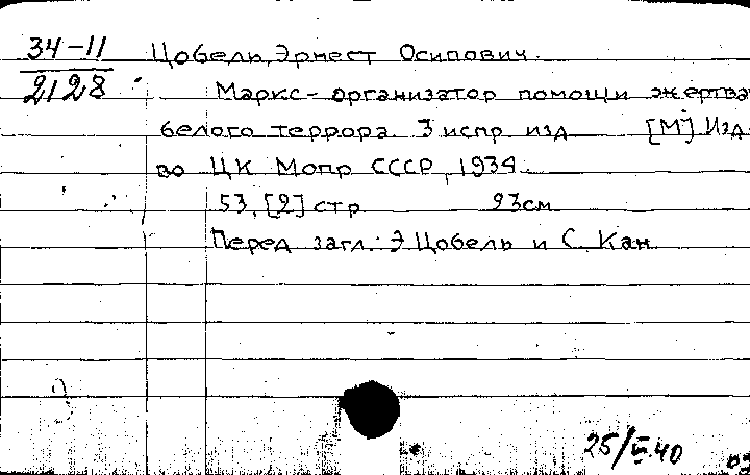 34-11
2128
Цобель, Эрнест Осипович.
Маркс - организатор помощи жертва
белого террора. 3 испр. изд [М] Изд-
во ЦК Мопр СССР, 1934.
53, [2] стр 23см
Перед загл.: Э. Цобель и С. Кан.
25/V.40